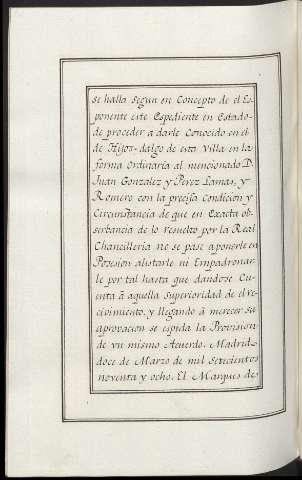 se halla segun en Concepto de el Es-
ponente este Espediente en Estado-
de proceder a darle Conocido en el
de Hijos-dalgo de esta Villa en la
forma Ordinaria al mencionado D.
Juan Gonzalez y Perez Lamar, y
Romero con la precisa Condicion y
Circunstancia de que en Exacta ob-
serbancia de lo resuelto por la Real
Chancilleria no se pase aponerle en
Posesion alistarle ni Empadronar-
le por tal hasta que dandose Cu-
enta â aquella Superioridad de el re-
civimiento, y llegando â merecer su
aprovacion se espida la Provision
de vn mismo Acuerdo. Madrid
doce de Marzo de mil Setecientos
noventa y ocho. El Marques de